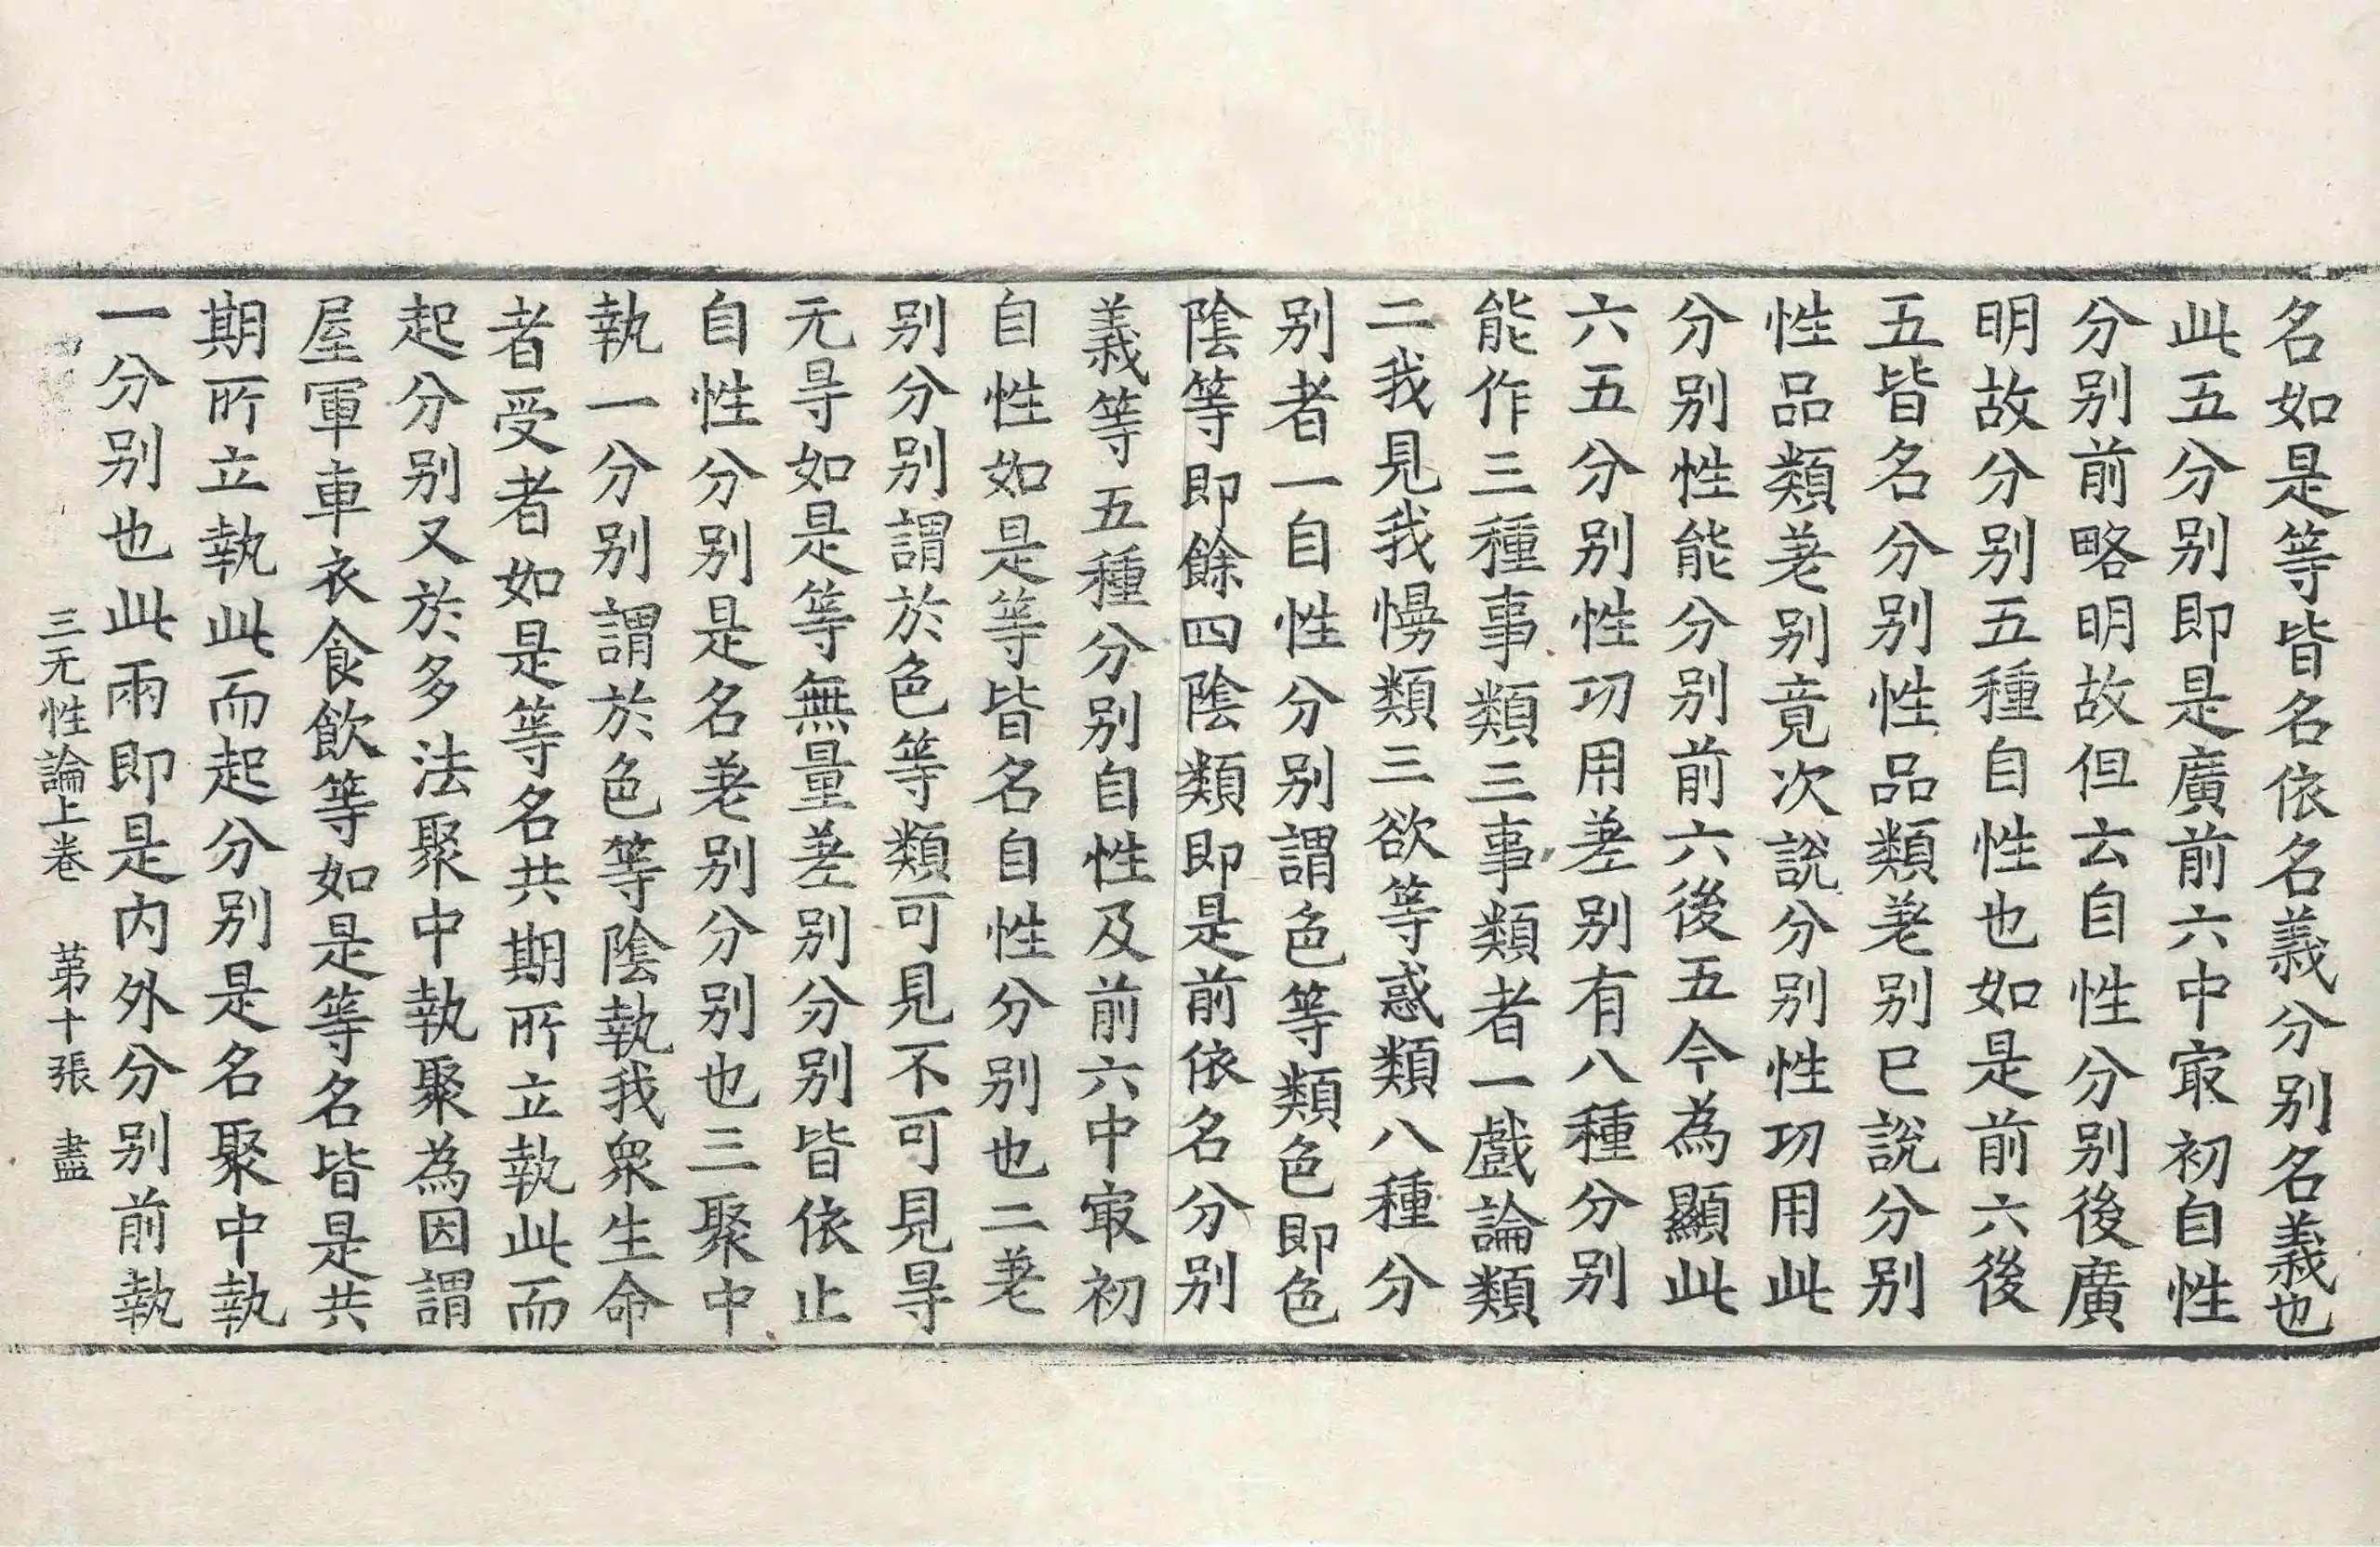 名如是等皆名依名義分別名義也
此五分別即是廣前六中㝡初自性
分別前略明故但云自性分別後廣
明故分別五種自性也如是前六後
五皆名分別性品類差別已說分別
性品類差別竟次說分別性功用此
分別性能分別前六後五今為顯此
六五分別性功用差別有八種分別
能作三種事類三事類者一戲論類
二我見我慢類三欲等惑類八種分
別者一自性分別謂色等類色即色
陰等即餘四陰類即是前依名分別
義等五種分別自性及前六中㝡初
自性如是等皆名自性分別也二差
別分別謂於色等類可見不可見㝵
无㝵如是等無量差別分別皆依止
自性分別是名差別分別也三聚中
執一分別謂於色等陰執我衆生命
者受者如是等名共期所立執此而
起分別又於多法聚中執聚為因謂
屋軍車衣食飲等如是等名皆是共
期所立執此而起分別是名聚中執
一分別也此兩即是内外分別前執
三无性論上卷 第十張 盡